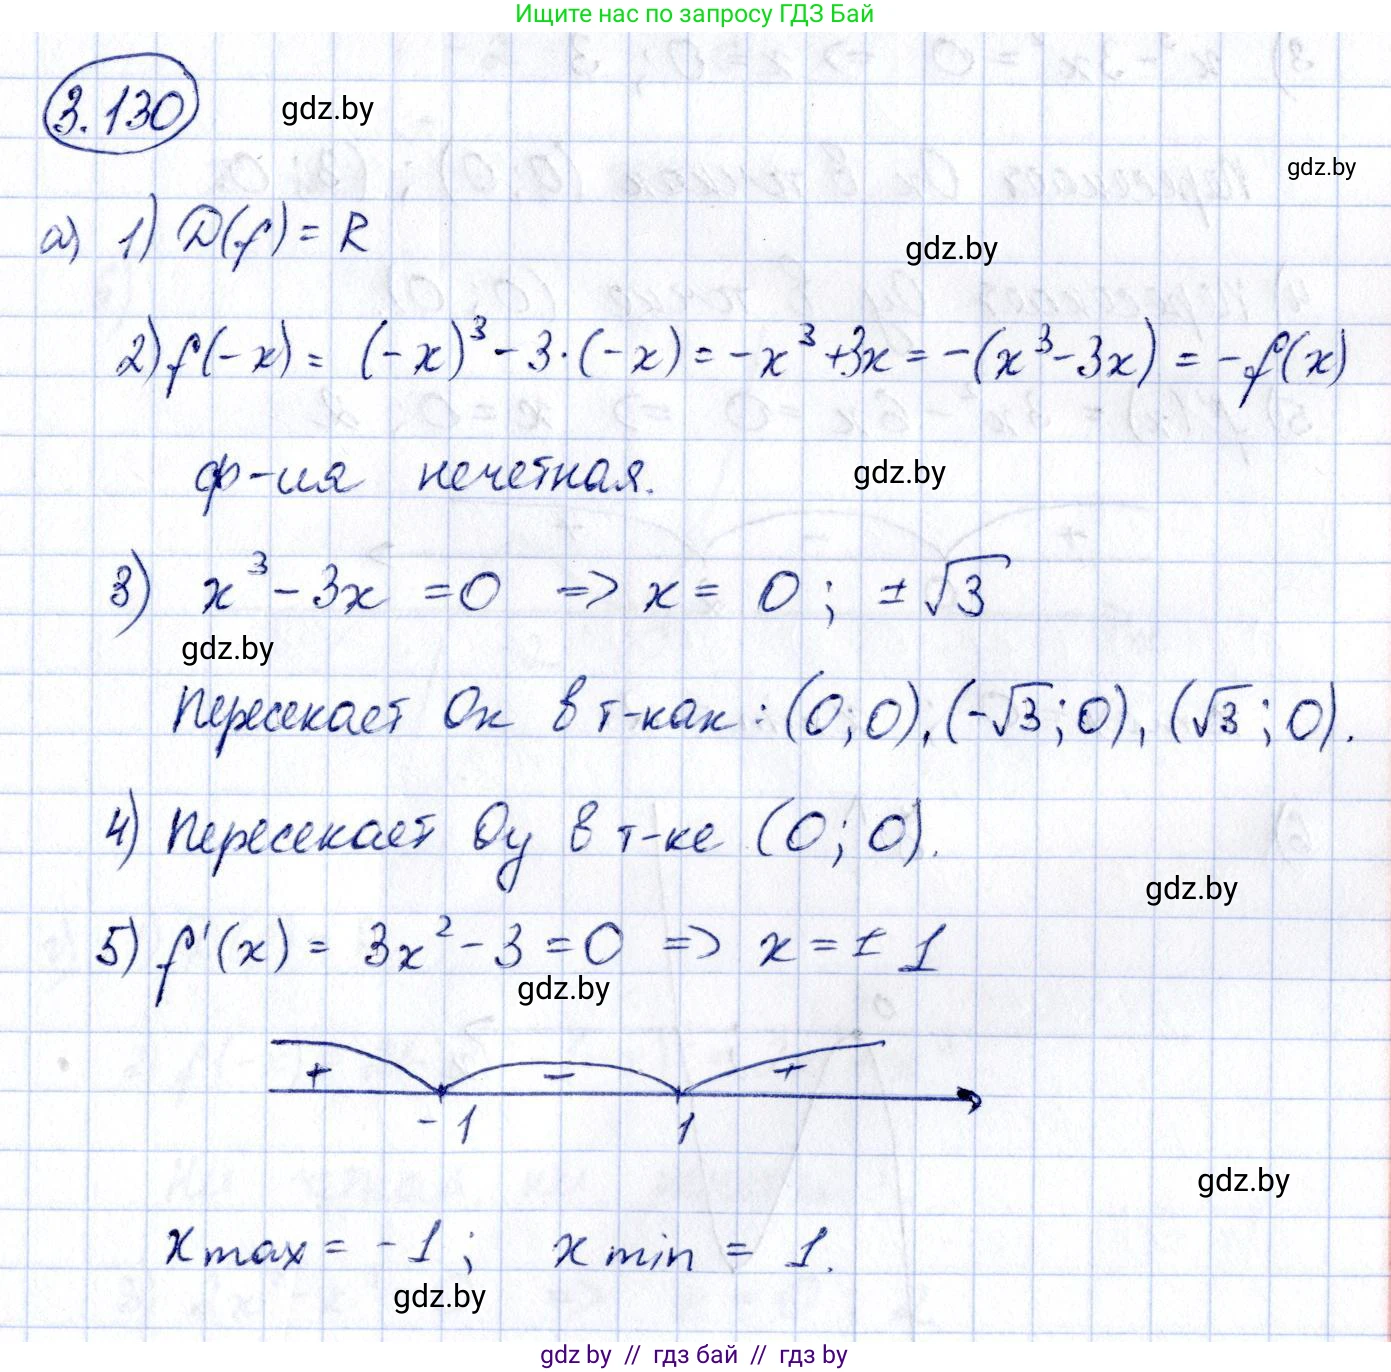 Ищите нас по запросу ГДЗ Бай
3.130
gdz.by
gdz.by
а) 1) D(f) = R
gdz.by
2) f(-x) = (-x)³ - 3·(-x) = -x³ + 3x = -(x³ - 3x) = -f(x)
ф-ия нечетная.
gdz.by
3) x³ - 3x = 0 => x = 0; ±√3
gdz.by
Пересекает Ox в т-как: (0;0), (-√3;0), (√3;0).
4) Пересекает Oy в т-ке (0;0).
gdz.by
5) f'(x) = 3x² - 3 = 0 => x = ± 1
gdz.by
+ - +
-1 1
gdz.by
xmax = -1; xmin = 1.
gdz.by
gdz by // гдз бай // gdz by